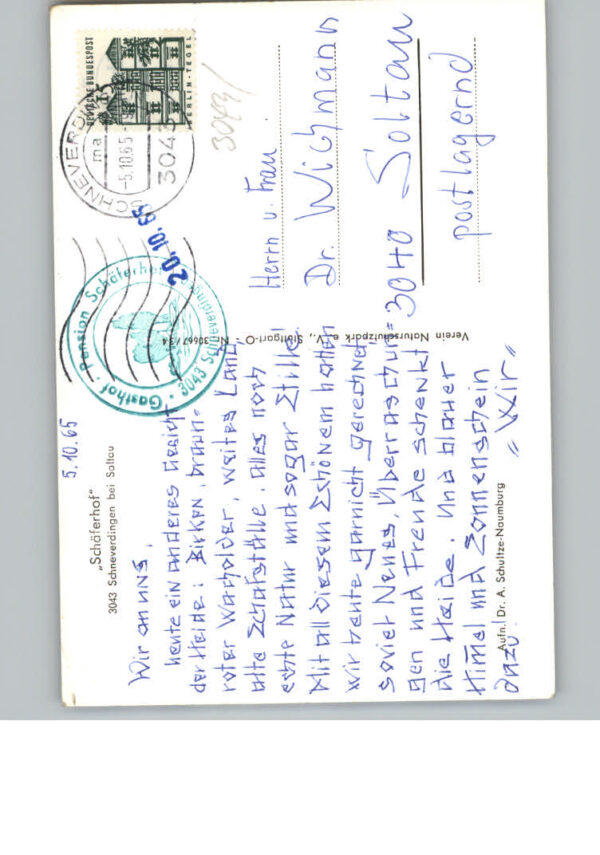 „Schäferhof"
3043 Schneverdingen bei Soltau
5.10.65
Wir an uns,
heute ein anderes Gesicht
der Heide: Birken, braun-
roter Wacholder, weites Land,
alte Schafställe, alles noch
echte Natur und sogar Stille!
Mit all diesem Schönem hatten
wir heute garnicht gerechnet,
soviel Neues, Überraschun=
gen und Freude schenkt
die Heide. Und blauer
Himmel und Sonnenschein
dazu.
„Wir"
Aufn. Dr. A. Schultze-Naumburg
Verein Naturschutzpark e. V., Stuttgart-O. Nr. 30667/34
Gasthof · Pension Schäferhof
3043 Schneverdingen
20.10.65
SCHNEVERDINGEN
ma
-5.10.65-
3043
DEUTSCHE BUNDESPOST
BERLIN-TEGEL
3043/
Herrn u. Frau
Dr. Wichmann
3040 Soltau
postlagernd